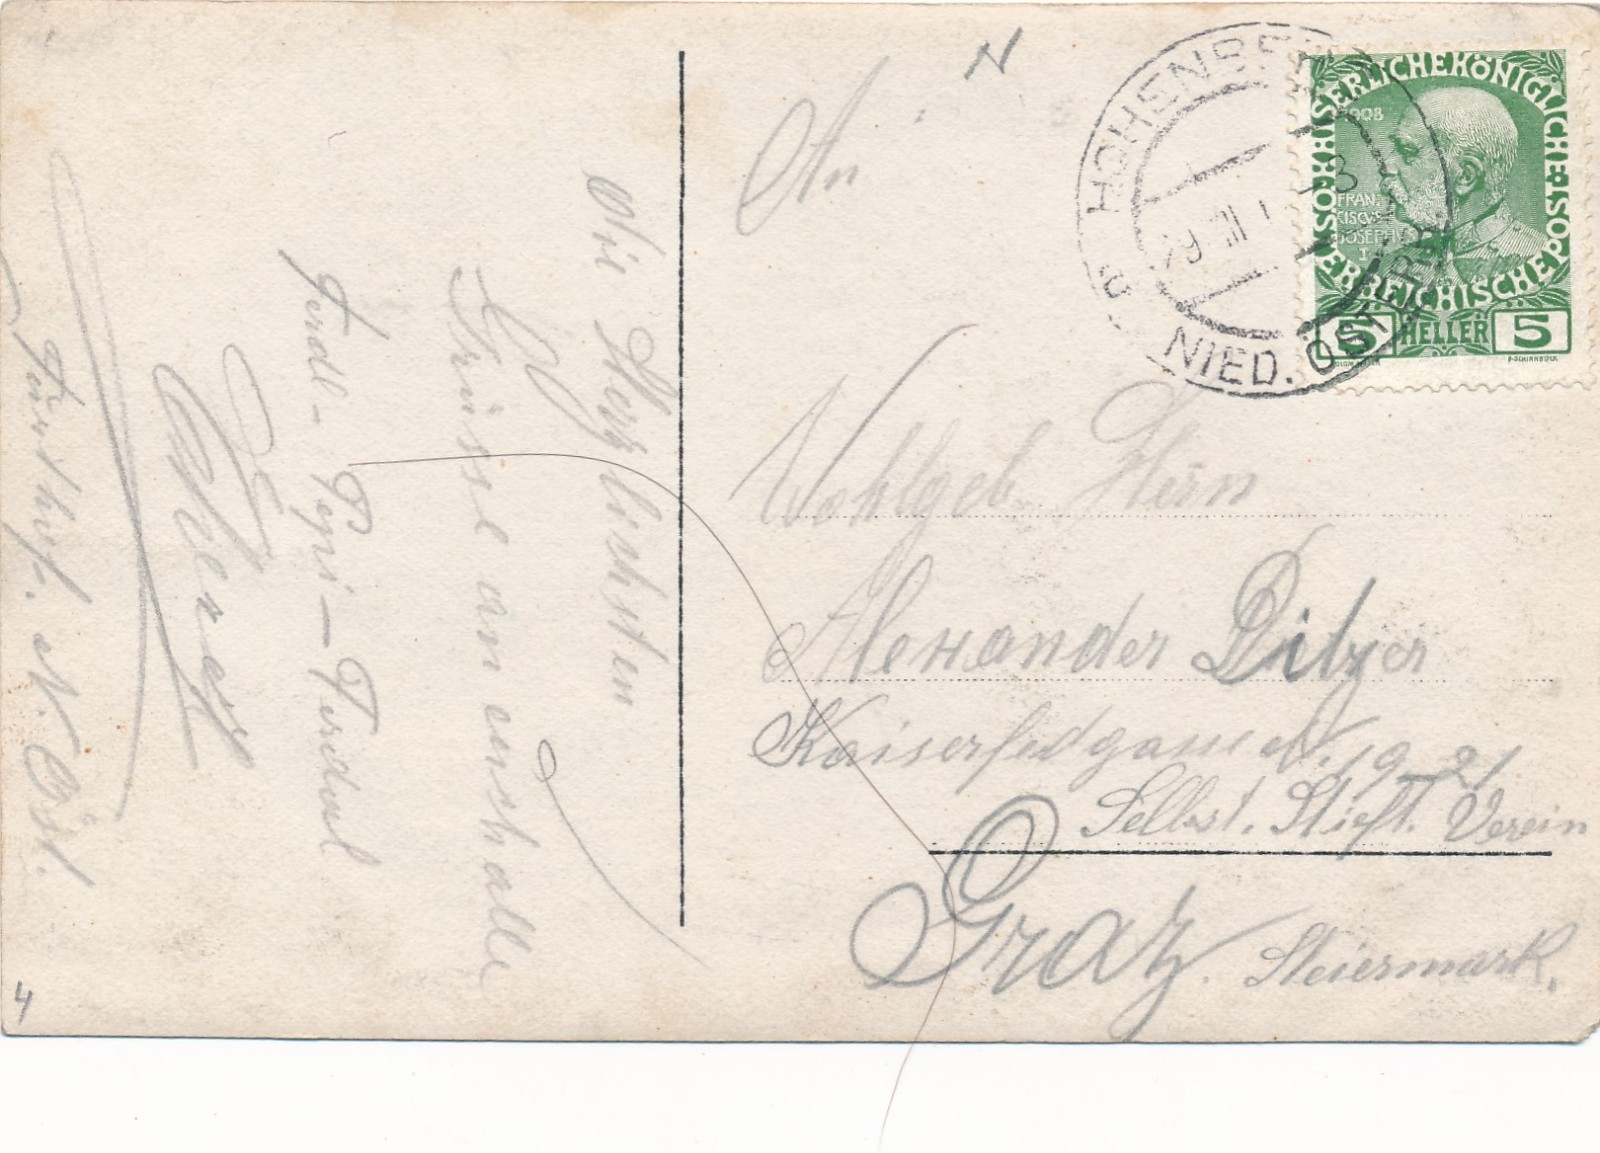 Die Herzlichsten
Grüsse an euch alle
Ferdl - Pepi - Ferdinel
Furthof. N. Öst.
4
N
An
Wohlgeb. Herrn
Alexander Ditzer
Kaiserfeldgasse N. 19. 21
Selbst. Stieft. Verein
Graz. Steiermark.
HOHENBE
a
29. III 1
NIED. ÖSTERR.
KAISERLICHE KÖNIGLICHE
ÖSTERREICHISCHE POST
1908
FRAN
CISCVS
JOSEPH
I
5 HELLER 5